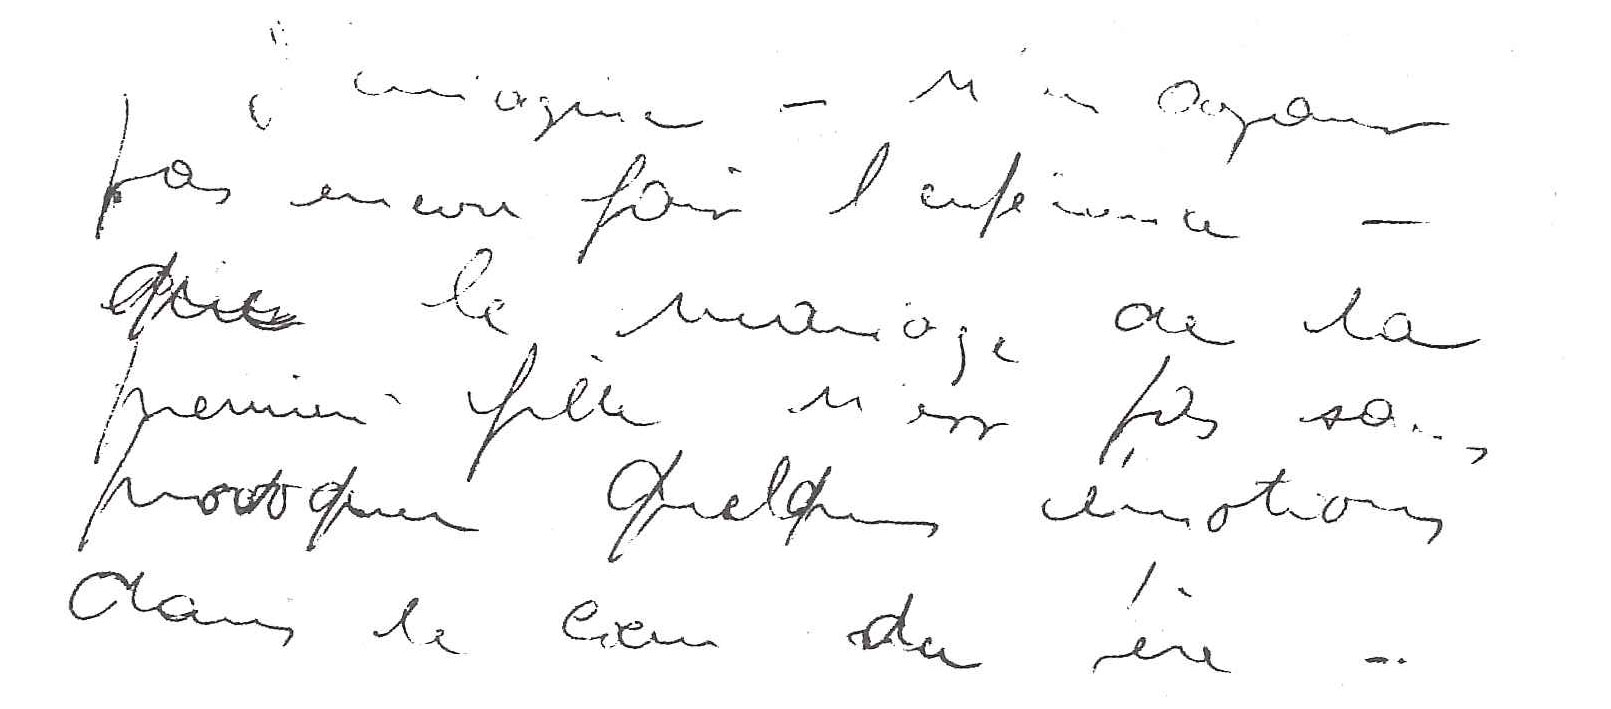 j'imagine – n'en ayant
pas encore fait l'expérience –
que le mariage de la
première fille n'est pas sans
provoquer quelques émotions
dans le cœur du père ..